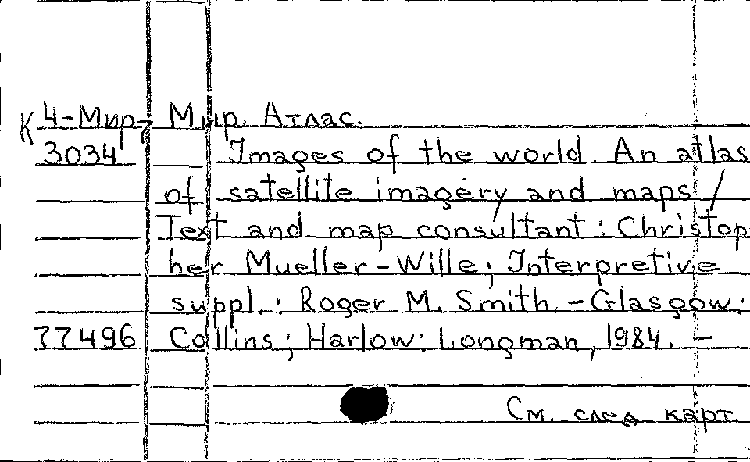 К 4-Мир, Мир. Атлас.
3034 Images of the world. An atlas
of satellite imagery and maps /
Text and map consultant : Christop
her Mueller-Wille; Interpretive
suppl.: Roger M. Smith. - Glasgow:
77496 Collins; Harlow: Longman, 1984. -
См. след карт